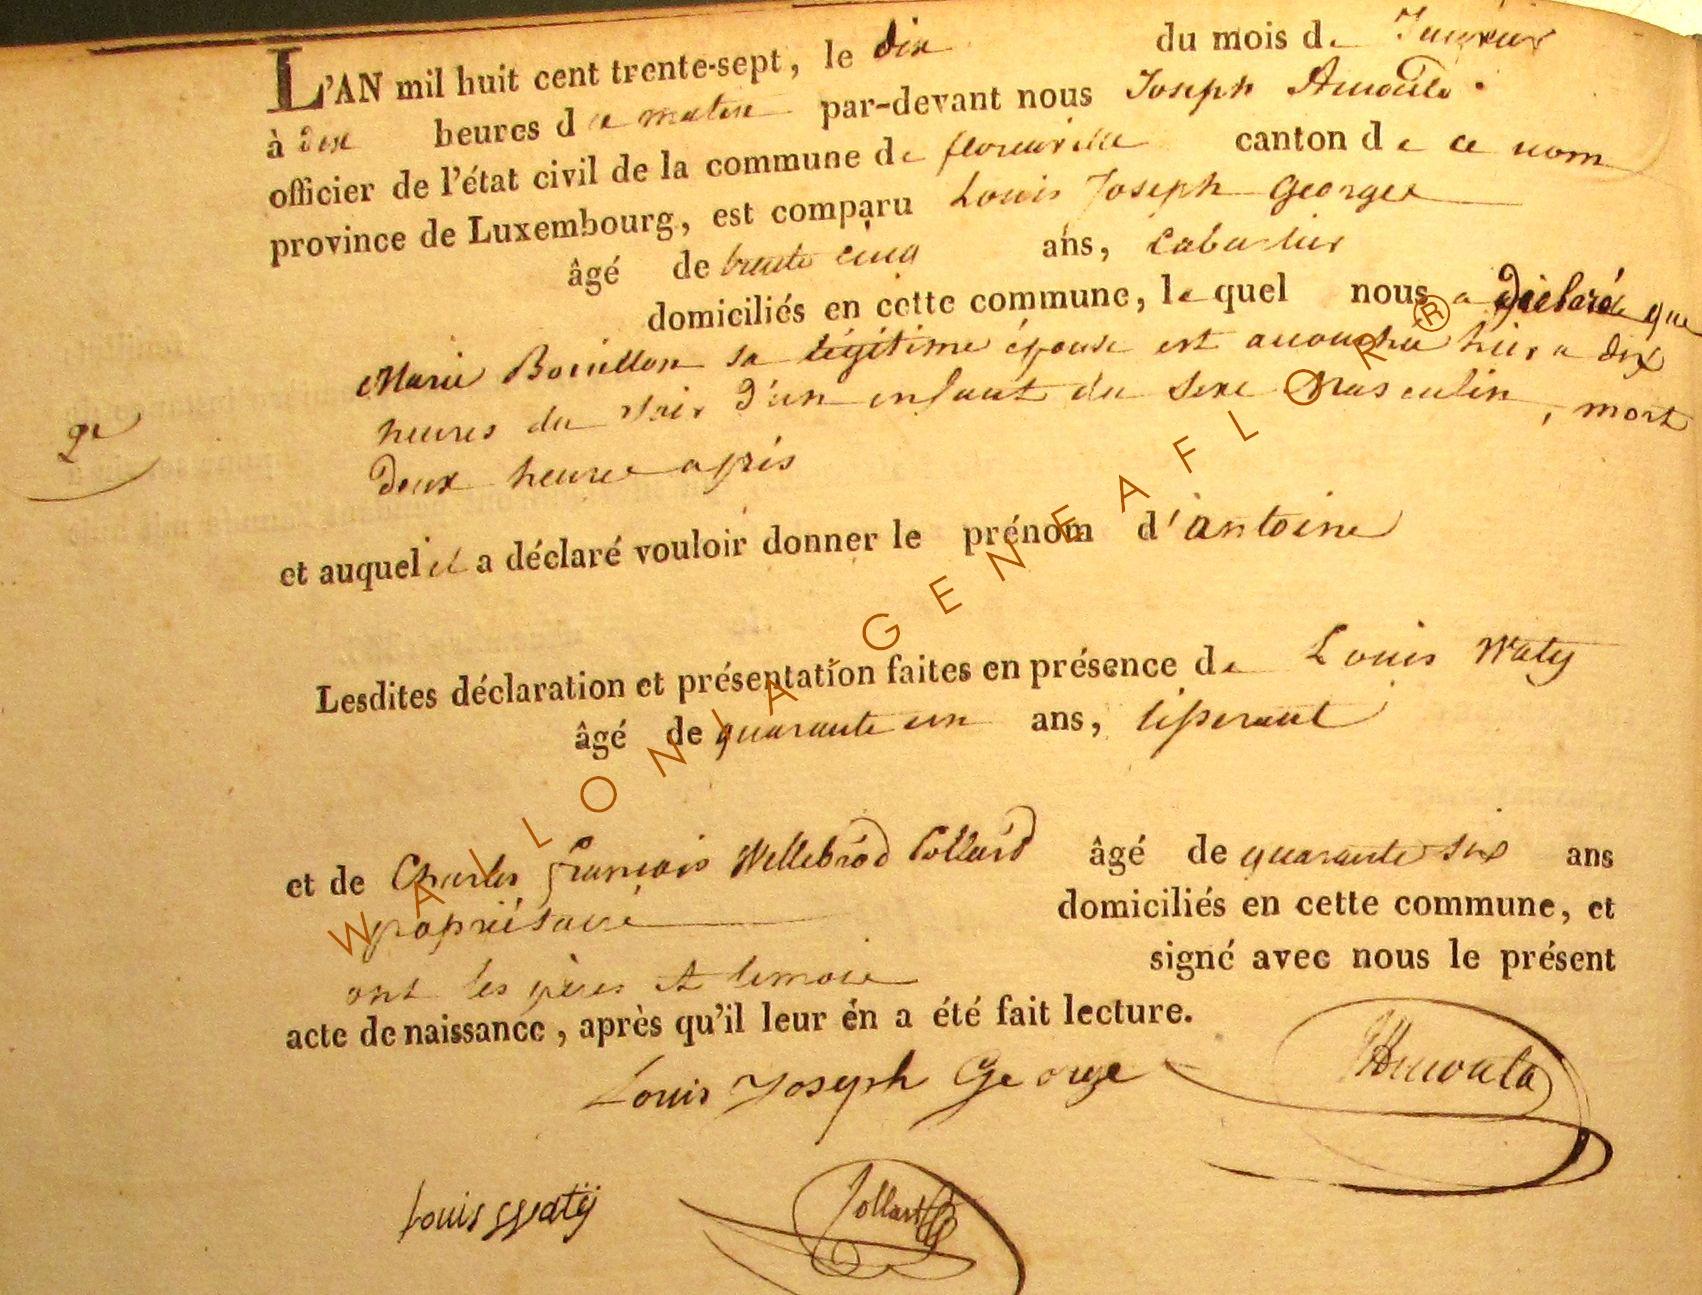 L'AN mil huit cent trente-sept, le dix du mois de Janvier
à dix heures du matin par-devant nous Joseph Arnould
officier de l'état civil de la commune de florenville canton de ce nom
province de Luxembourg, est comparu Louis Joseph George
âgé de trente cinq ans, Cabartier
domiciliés en cette commune, le quel nous a déclaré que
Marie Bouillon sa légitime épouse est accouchée hier a dix
heures du soir d'un enfant du sexe Masculin, mort
ge
deux heure après
et auquel il a déclaré vouloir donner le prénom d'antoine
Lesdites déclaration et présentation faites en présence de Louis Waty
âgé de quarante un ans, tisserant
et de Charles françois Willebrod Collard âgé de quarante six ans
propriétaire domiciliés en cette commune, et
ont les pères et temoie signé avec nous le présent
acte de naissance, après qu'il leur en a été fait lecture.
Louis Joseph George
Arnould
Louis Watÿ
Collart
WALLONIA GENEAFLOR®